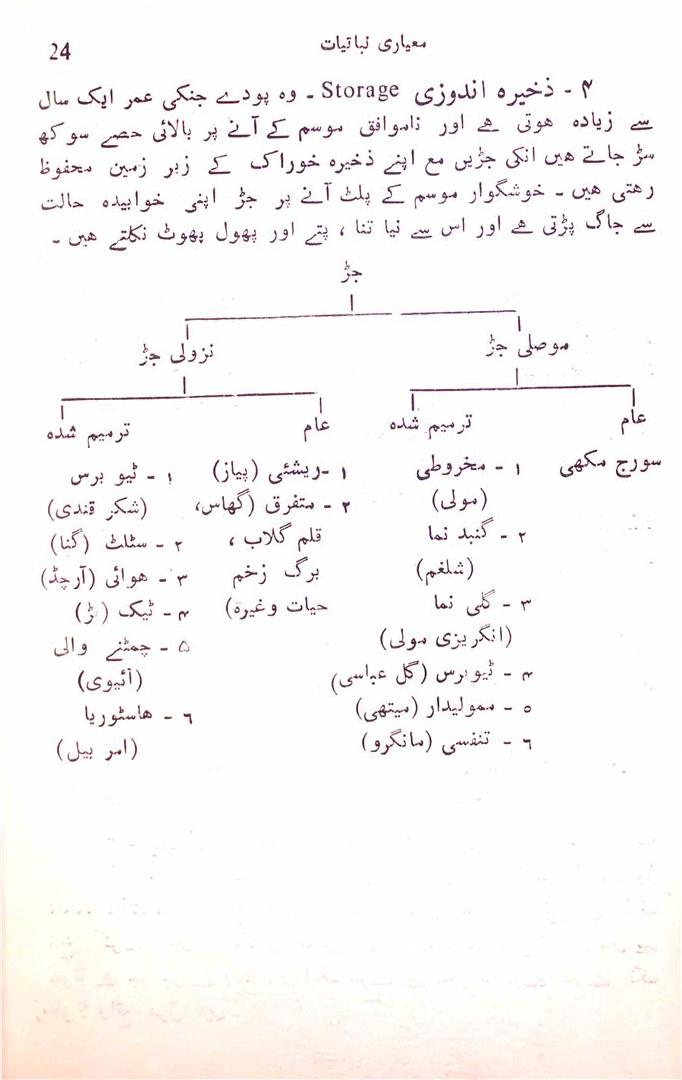 معیاری نباتیات
24
۴ - ذخیرہ اندوزی Storage - وہ پودے جنکی عمر ایک سال
سے زیادہ ہوتی ہے اور ناموافق موسم کے آنے پر بالائی حصے سوکھ
سڑ جاتے ہیں انکی جڑیں مع اپنے ذخیرہ خوراک کے زیر زمین محفوظ
رہتی ہیں - خوشگوار موسم کے پلٹ آنے پر جڑ اپنی خوابیدہ حالت
سے جاگ پڑتی ہے اور اس سے نیا تنا ، پتے اور پھول پھوٹ نکلتے ہیں -
جڑ
موصلی جڑ
نزولی جڑ
عام
ترمیم شدہ
عام
ترمیم شدہ
سورج مکھی
۱ - مخروطی
(مولی)
۲ - گنبد نما
(شلغم)
۳ - گلی نما
(انگریزی مولی)
۴ - ٹیوبرس (گل عباسی)
۵ - ممولیدار (میتھی)
۶ - تنفسی (مانگرو)
۱ -ریشئی (پیاز)
۲ - متفرق (گھاس،
قلم گلاب ،
برگ زخم
حیات وغیرہ)
۱ - ٹیو برس
(شکر قندی)
۲ - سٹلٹ (گنا)
۳ - ہوائی (آرچڈ)
۴ - ٹیک (بڑ)
۵ - چمٹنے والی
(آئیوی)
۶ - ہاسٹوریا
(امر بیل)